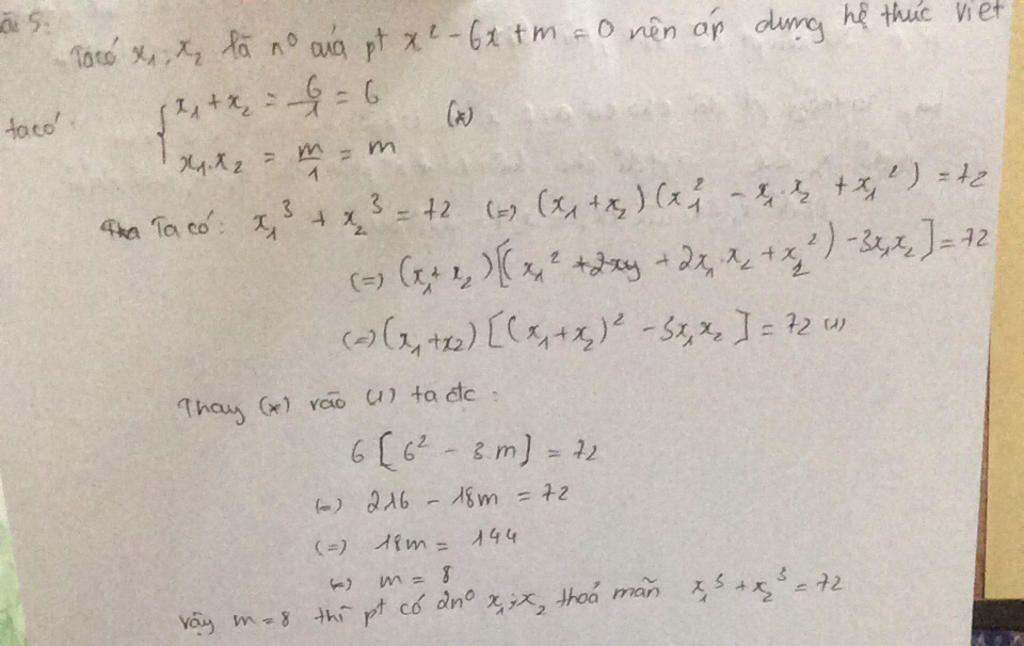 ài 5.
Ta có x₁, x₂ là nº của pt x² - 6x + m = 0 nên áp dụng hệ thức viet
ta có
{ x₁ + x₂ = 6/1 = 6
x₁.x₂ = m/1 = m (*)
Ta có: x₁³ + x₂³ = 72 (=) (x₁ + x₂)(x₁² - x₁.x₂ + x₁²) = 72
(=) (x₁ + x₂)[(x₁² + 2xy + 2x₁.x₂ + x₂²) - 3x₁x₂] = 72
(=) (x₁ + x₂)[(x₁ + x₂)² - 3x₁x₂] = 72 (1)
Thay (*) vào (1) ta đc :
6 [6² - 3.m] = 72
(=) 216 - 18m = 72
(=) 18m = 144
(=) m = 8
vậy m = 8 thì pt có 2nº x₁; x₂ thoả mãn x₁³ + x₂³ = 72